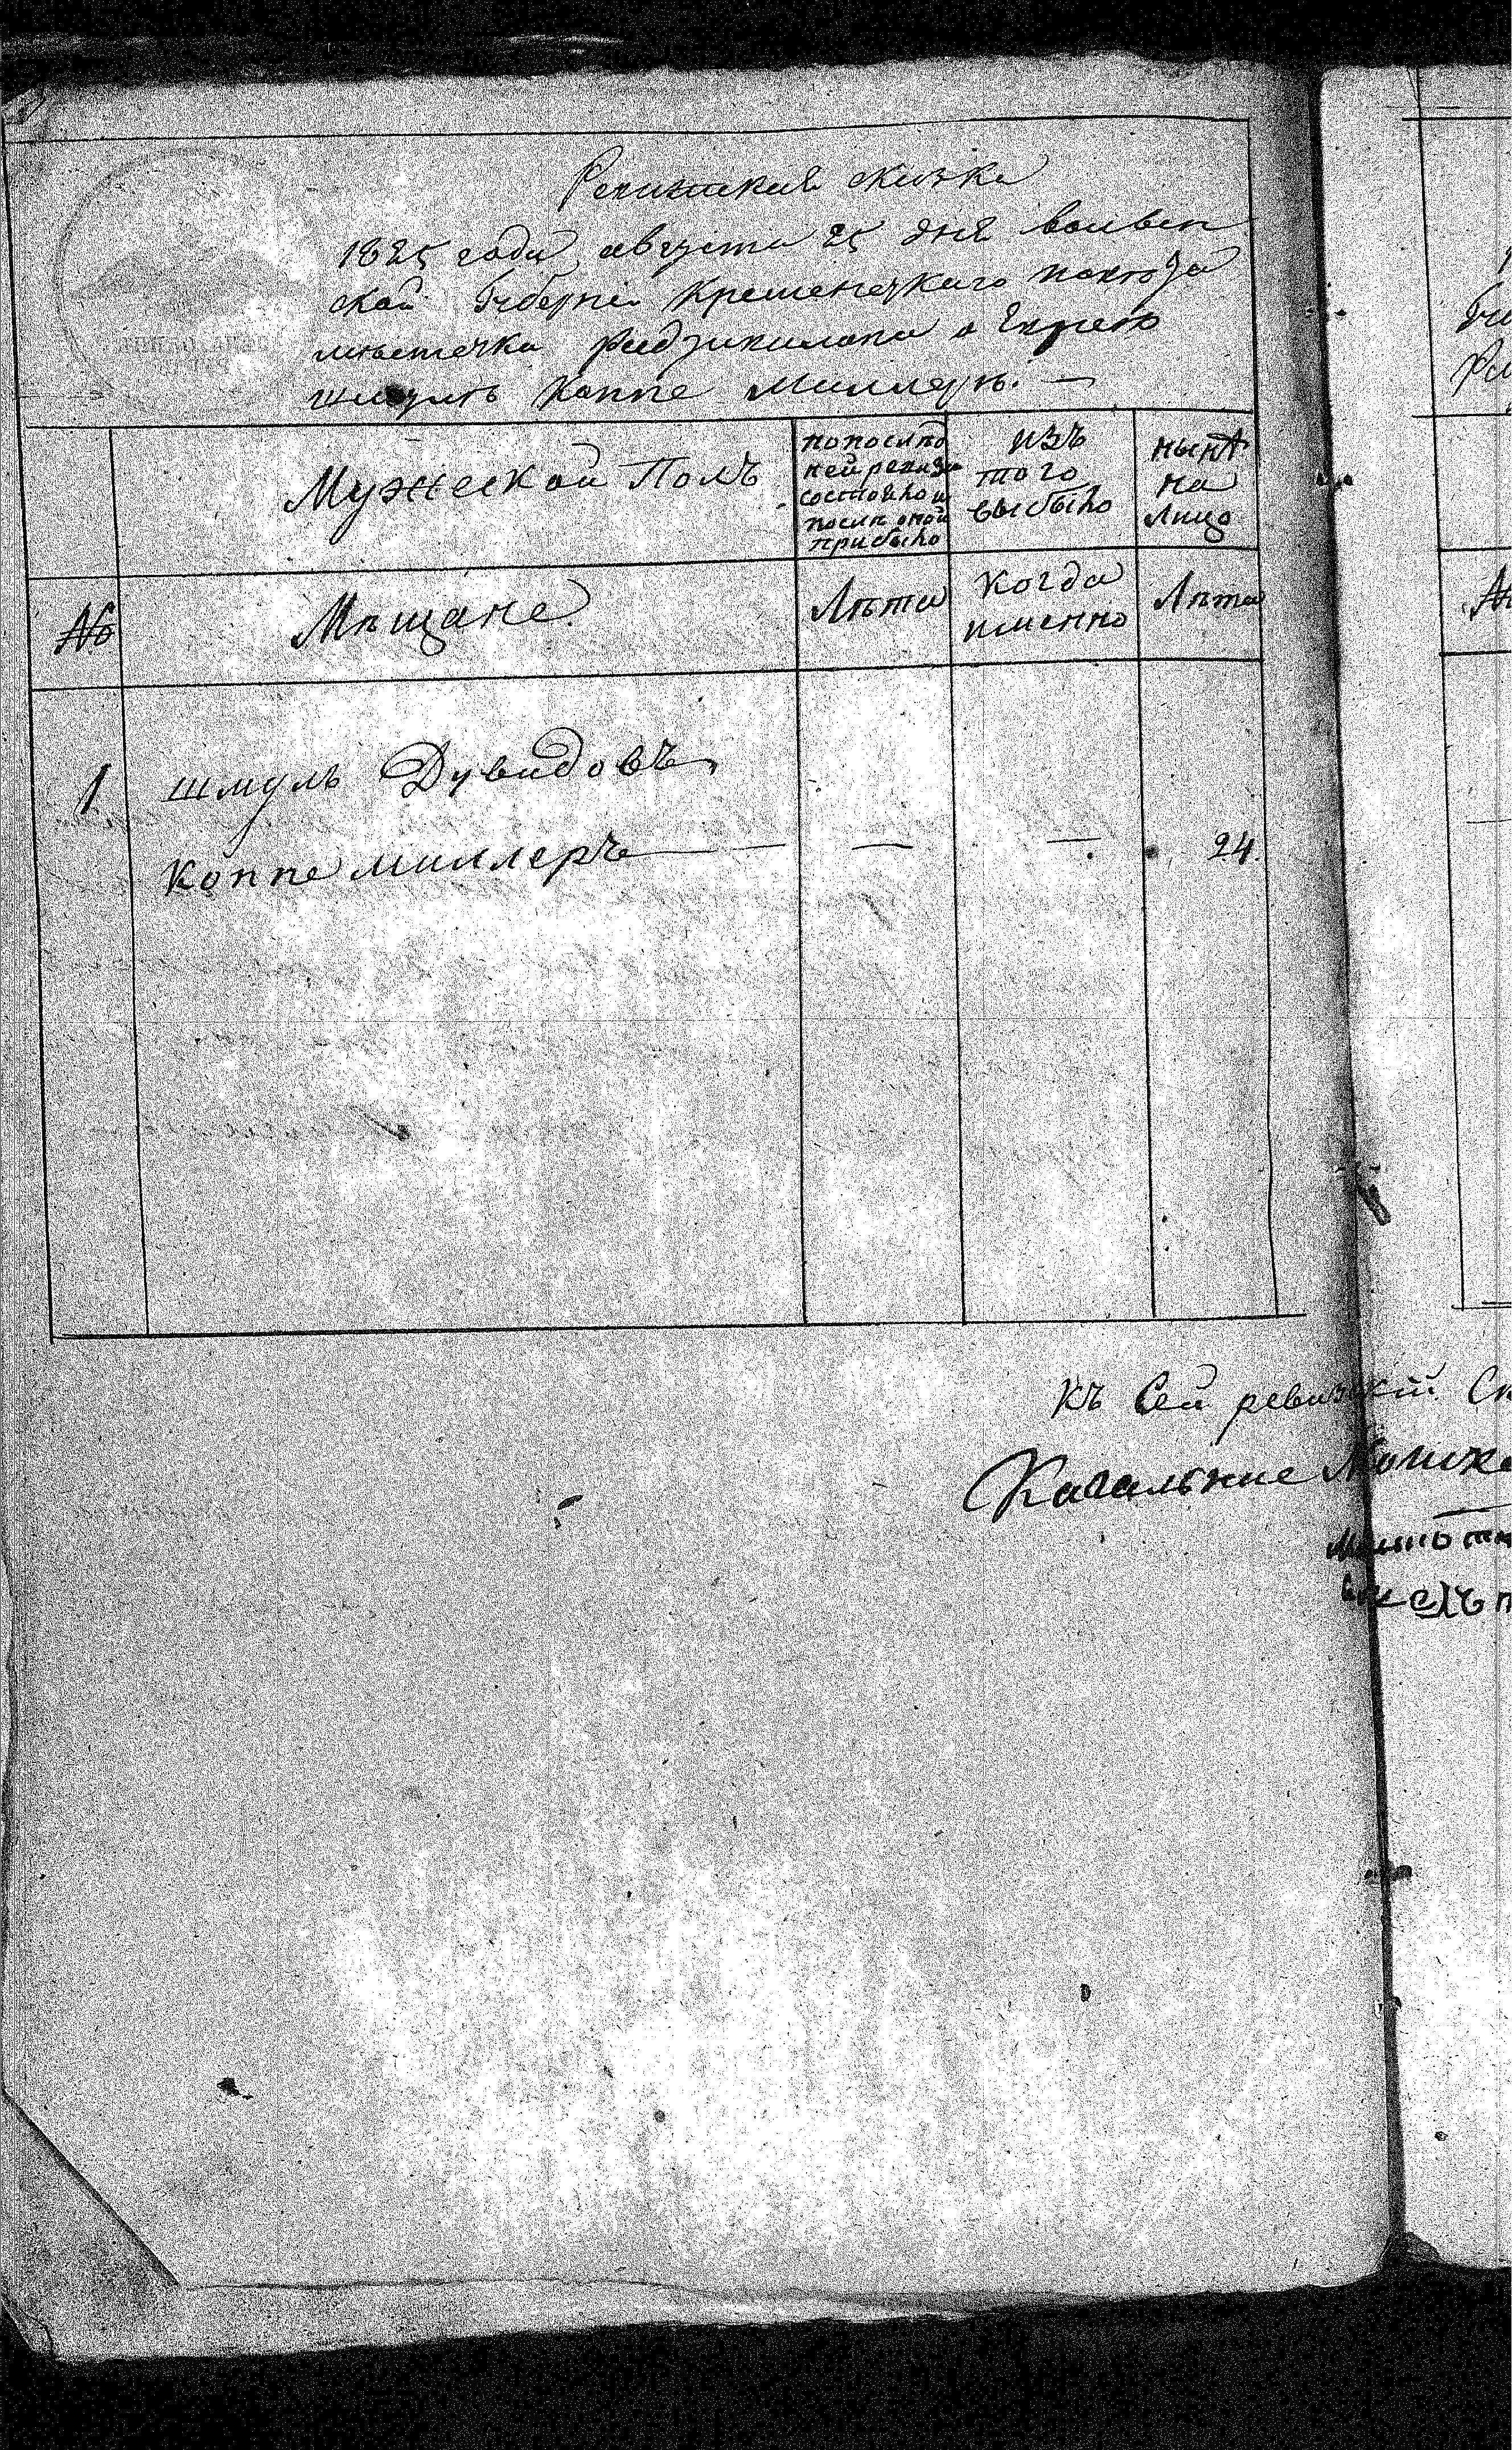 Ревизская сказка
1825 года августа 25 дня волын
ской Губерніи Кременецкаго повѣта
мѣстечка Радзивилова о Евреѣ
шмулѣ Коппе Миллерѣ. —
Мужеской Полъ
по посилѣд
ней ревизіи
состояло и
послѣ оной
прибыло
изъ
того
выбыло
нынѣ
на
лицо
№
Мѣщане
Лѣта
когда
именно
Лѣта
1 шмуль Дувидовъ
Коппе миллеръ — — — 24.
Къ Сей ревизкій
Кагальные